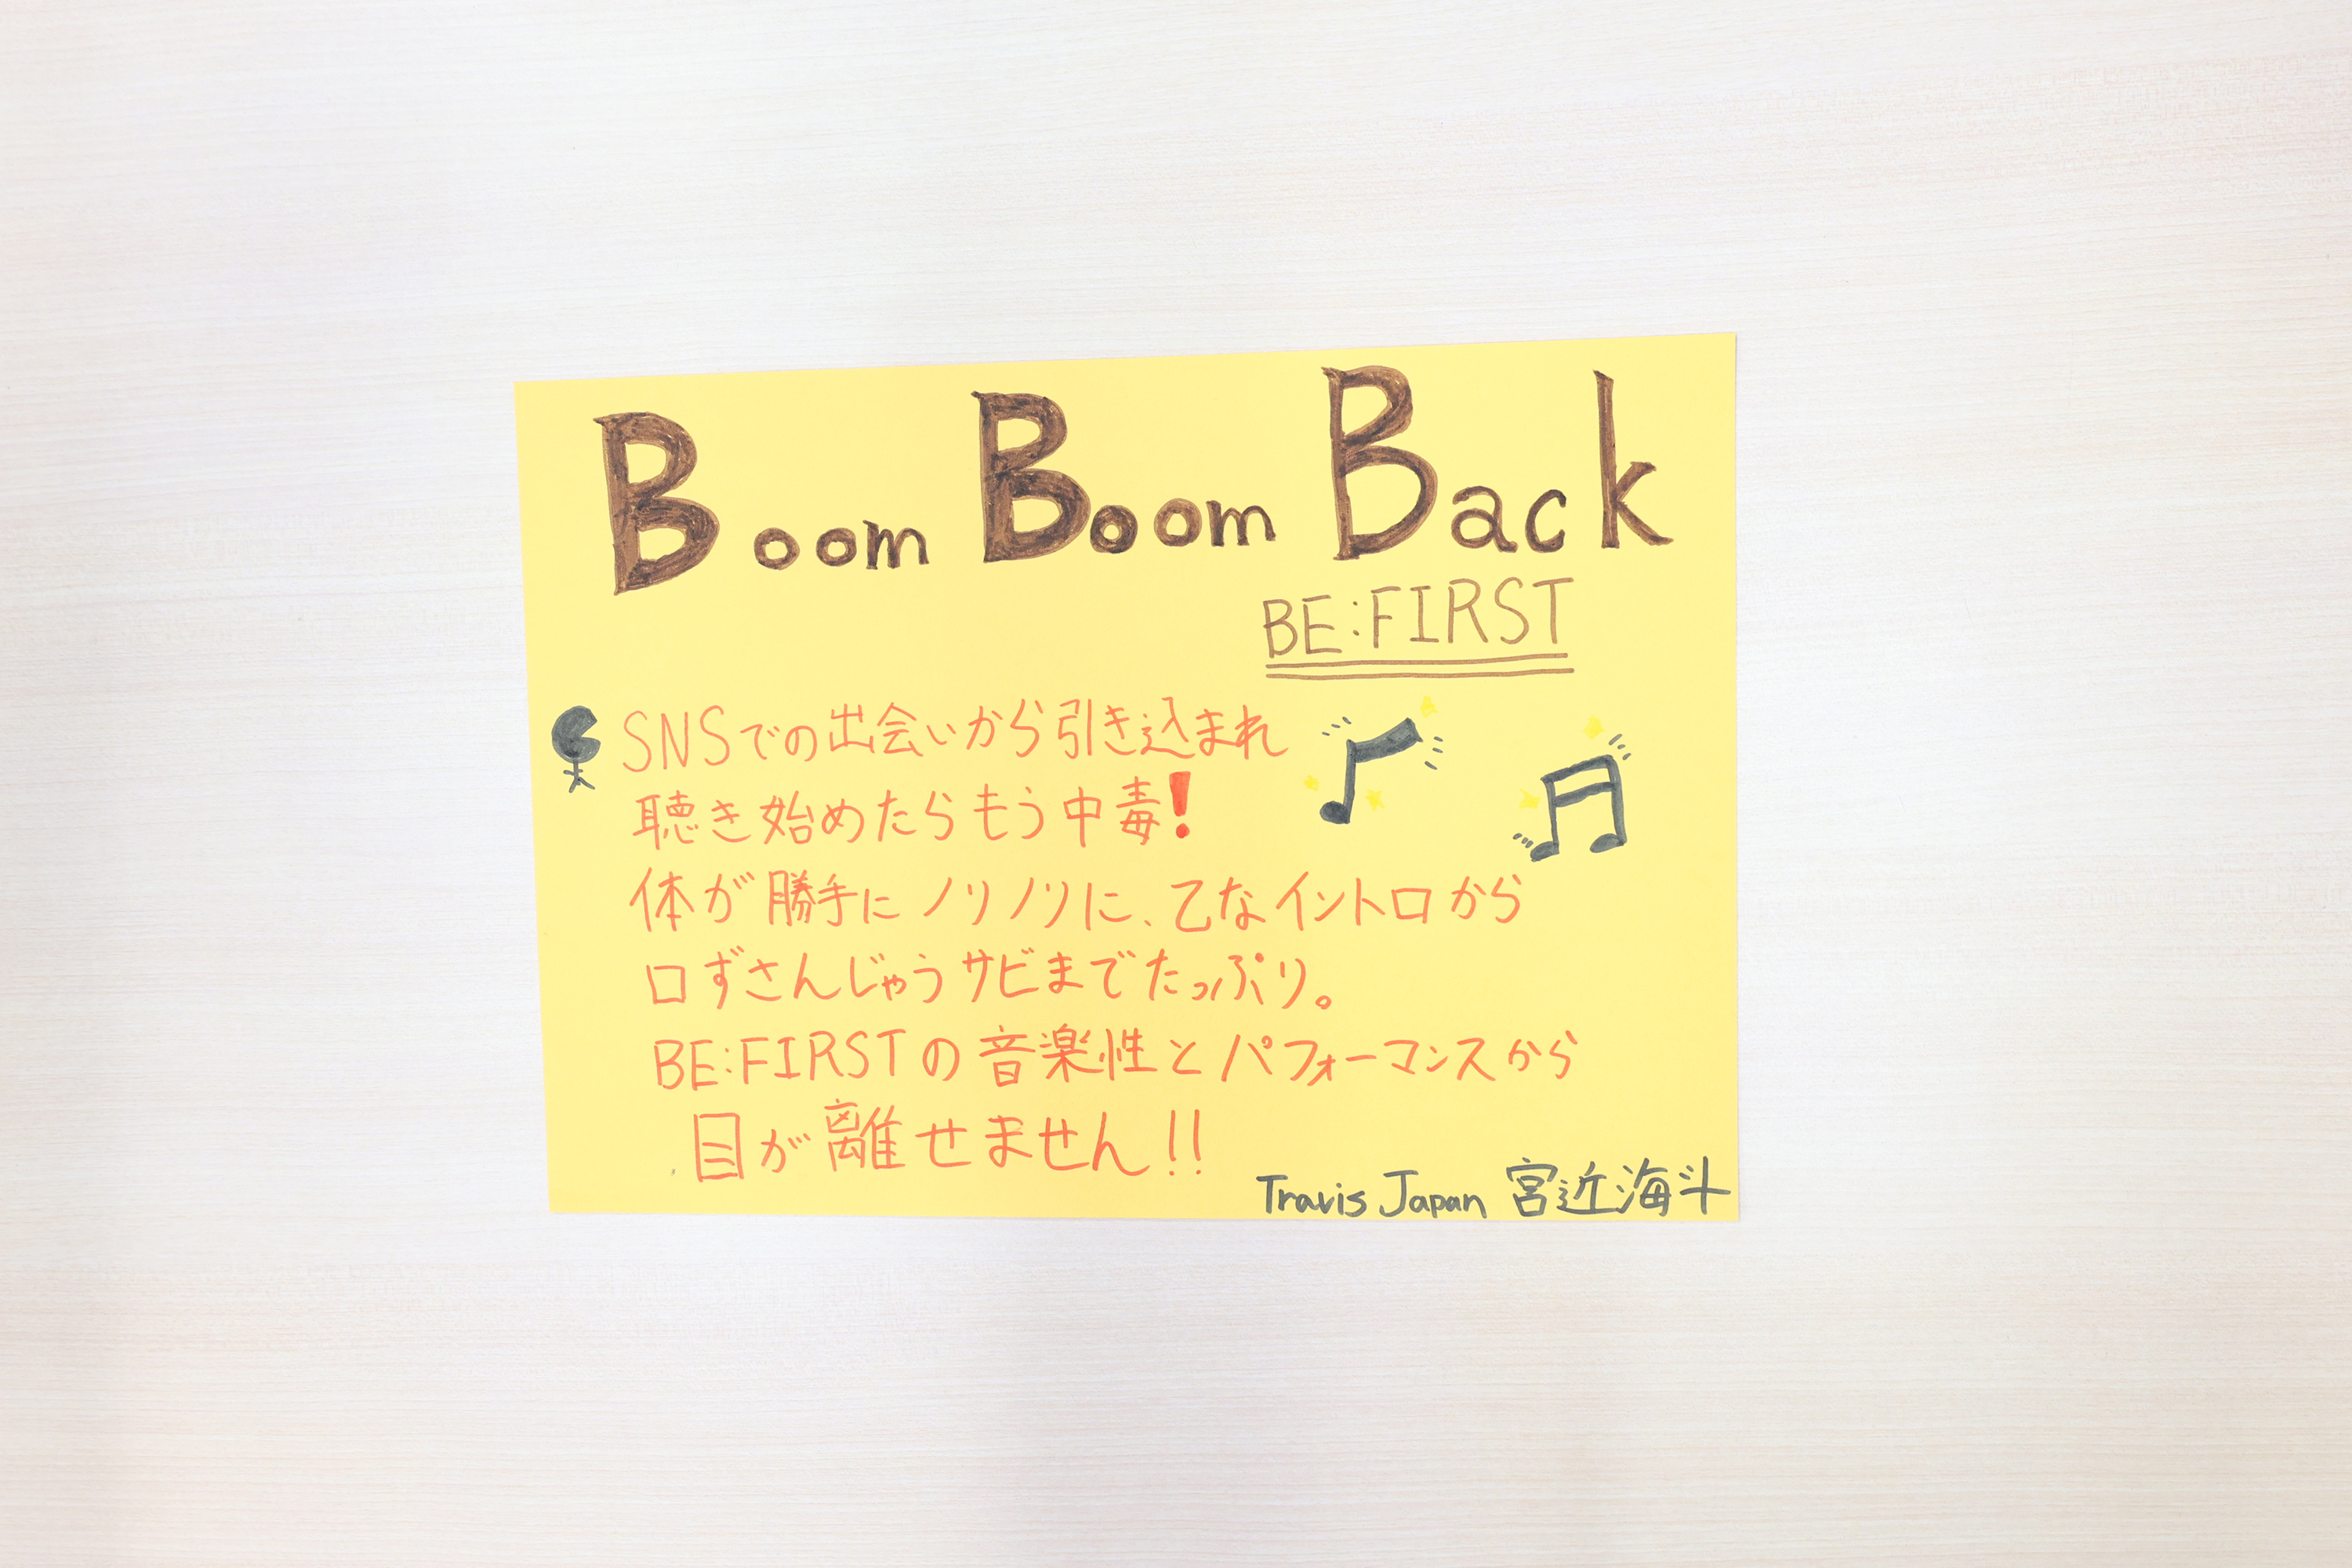 Boom Boom Back
BE:FIRST
SNSでの出会いから引き込まれ
聴き始めたらもう中毒!
体が勝手にノリノリに、乙なイントロから
口ずさんじゃうサビまでたっぷり。
BE:FIRSTの音楽性とパフォーマンスから
目が離せません!!
Travis Japan 宮近海斗